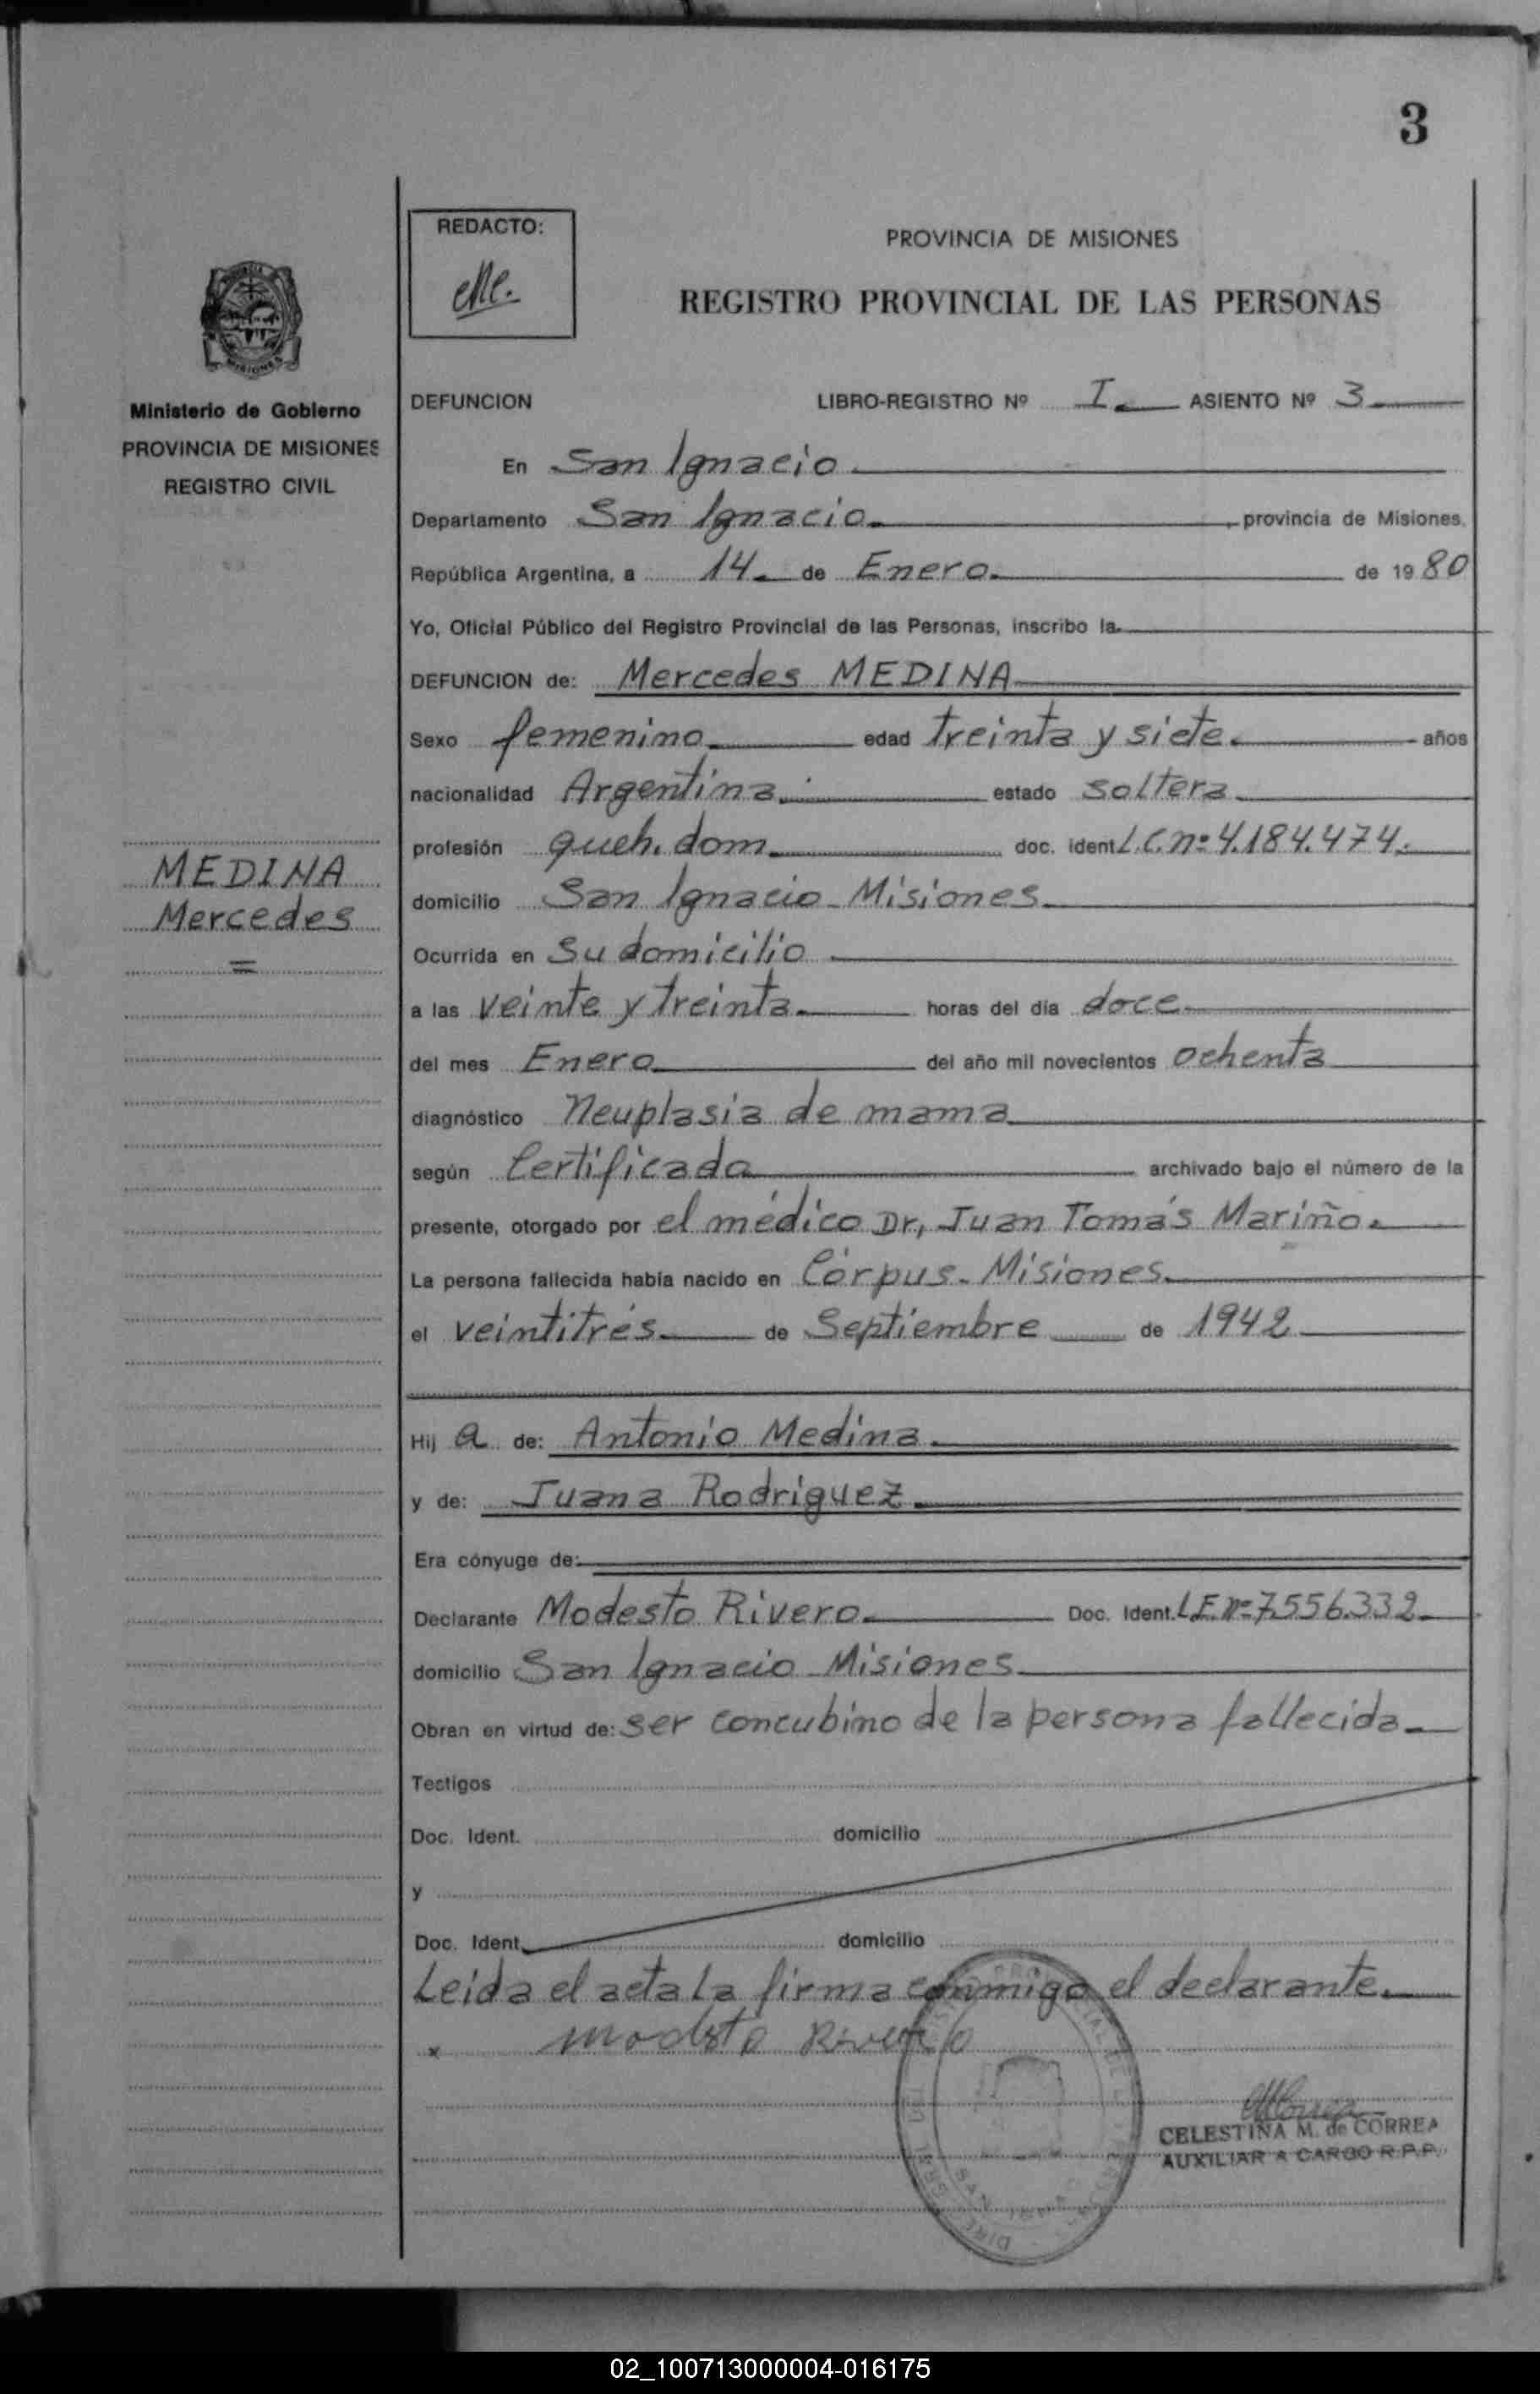 3
REDACTO:
PROVINCIA DE MISIONES
REGISTRO PROVINCIAL DE LAS PERSONAS
Ministerio de Gobierno
PROVINCIA DE MISIONES
REGISTRO CIVIL
MEDINA
Mercedes
DEFUNCION LIBRO-REGISTRO Nº I ASIENTO Nº 3
En San Ignacio
Departamento San Ignacio, provincia de Misiones,
República Argentina, a 14 de Enero de 1980
Yo, Oficial Público del Registro Provincial de las Personas, inscribo la
DEFUNCION de: Mercedes MEDINA
Sexo femenino edad treinta y siete años
nacionalidad Argentina estado soltera
profesión queh. dom. doc. ident L.C. nº 4.184.474.
domicilio San Ignacio - Misiones
Ocurrida en su domicilio
a las veinte y treinta horas del día doce
del mes Enero del año mil novecientos ochenta
diagnóstico Neuplasia de mama
según Certificado archivado bajo el número de la
presente, otorgado por el médico Dr, Juan Tomás Mariño.
La persona fallecida había nacido en Córpus - Misiones
el veintitrés de Septiembre de 1942
Hij a de: Antonio Medina
y de: Juana Rodriguez
Era cónyuge de:
Declarante Modesto Rivero Doc. Ident. L.E. nº 7.556.332
domicilio San Ignacio - Misiones
Obran en virtud de: ser concubino de la persona fallecida
Testigos
Doc. Ident. domicilio
y
Doc. Ident. domicilio
Leída el acta la firma conmigo el declarante.
x modesto Rivero
CELESTINA M. de CORREA
AUXILIAR A CARGO R.P.P.
02_100713000004-016175